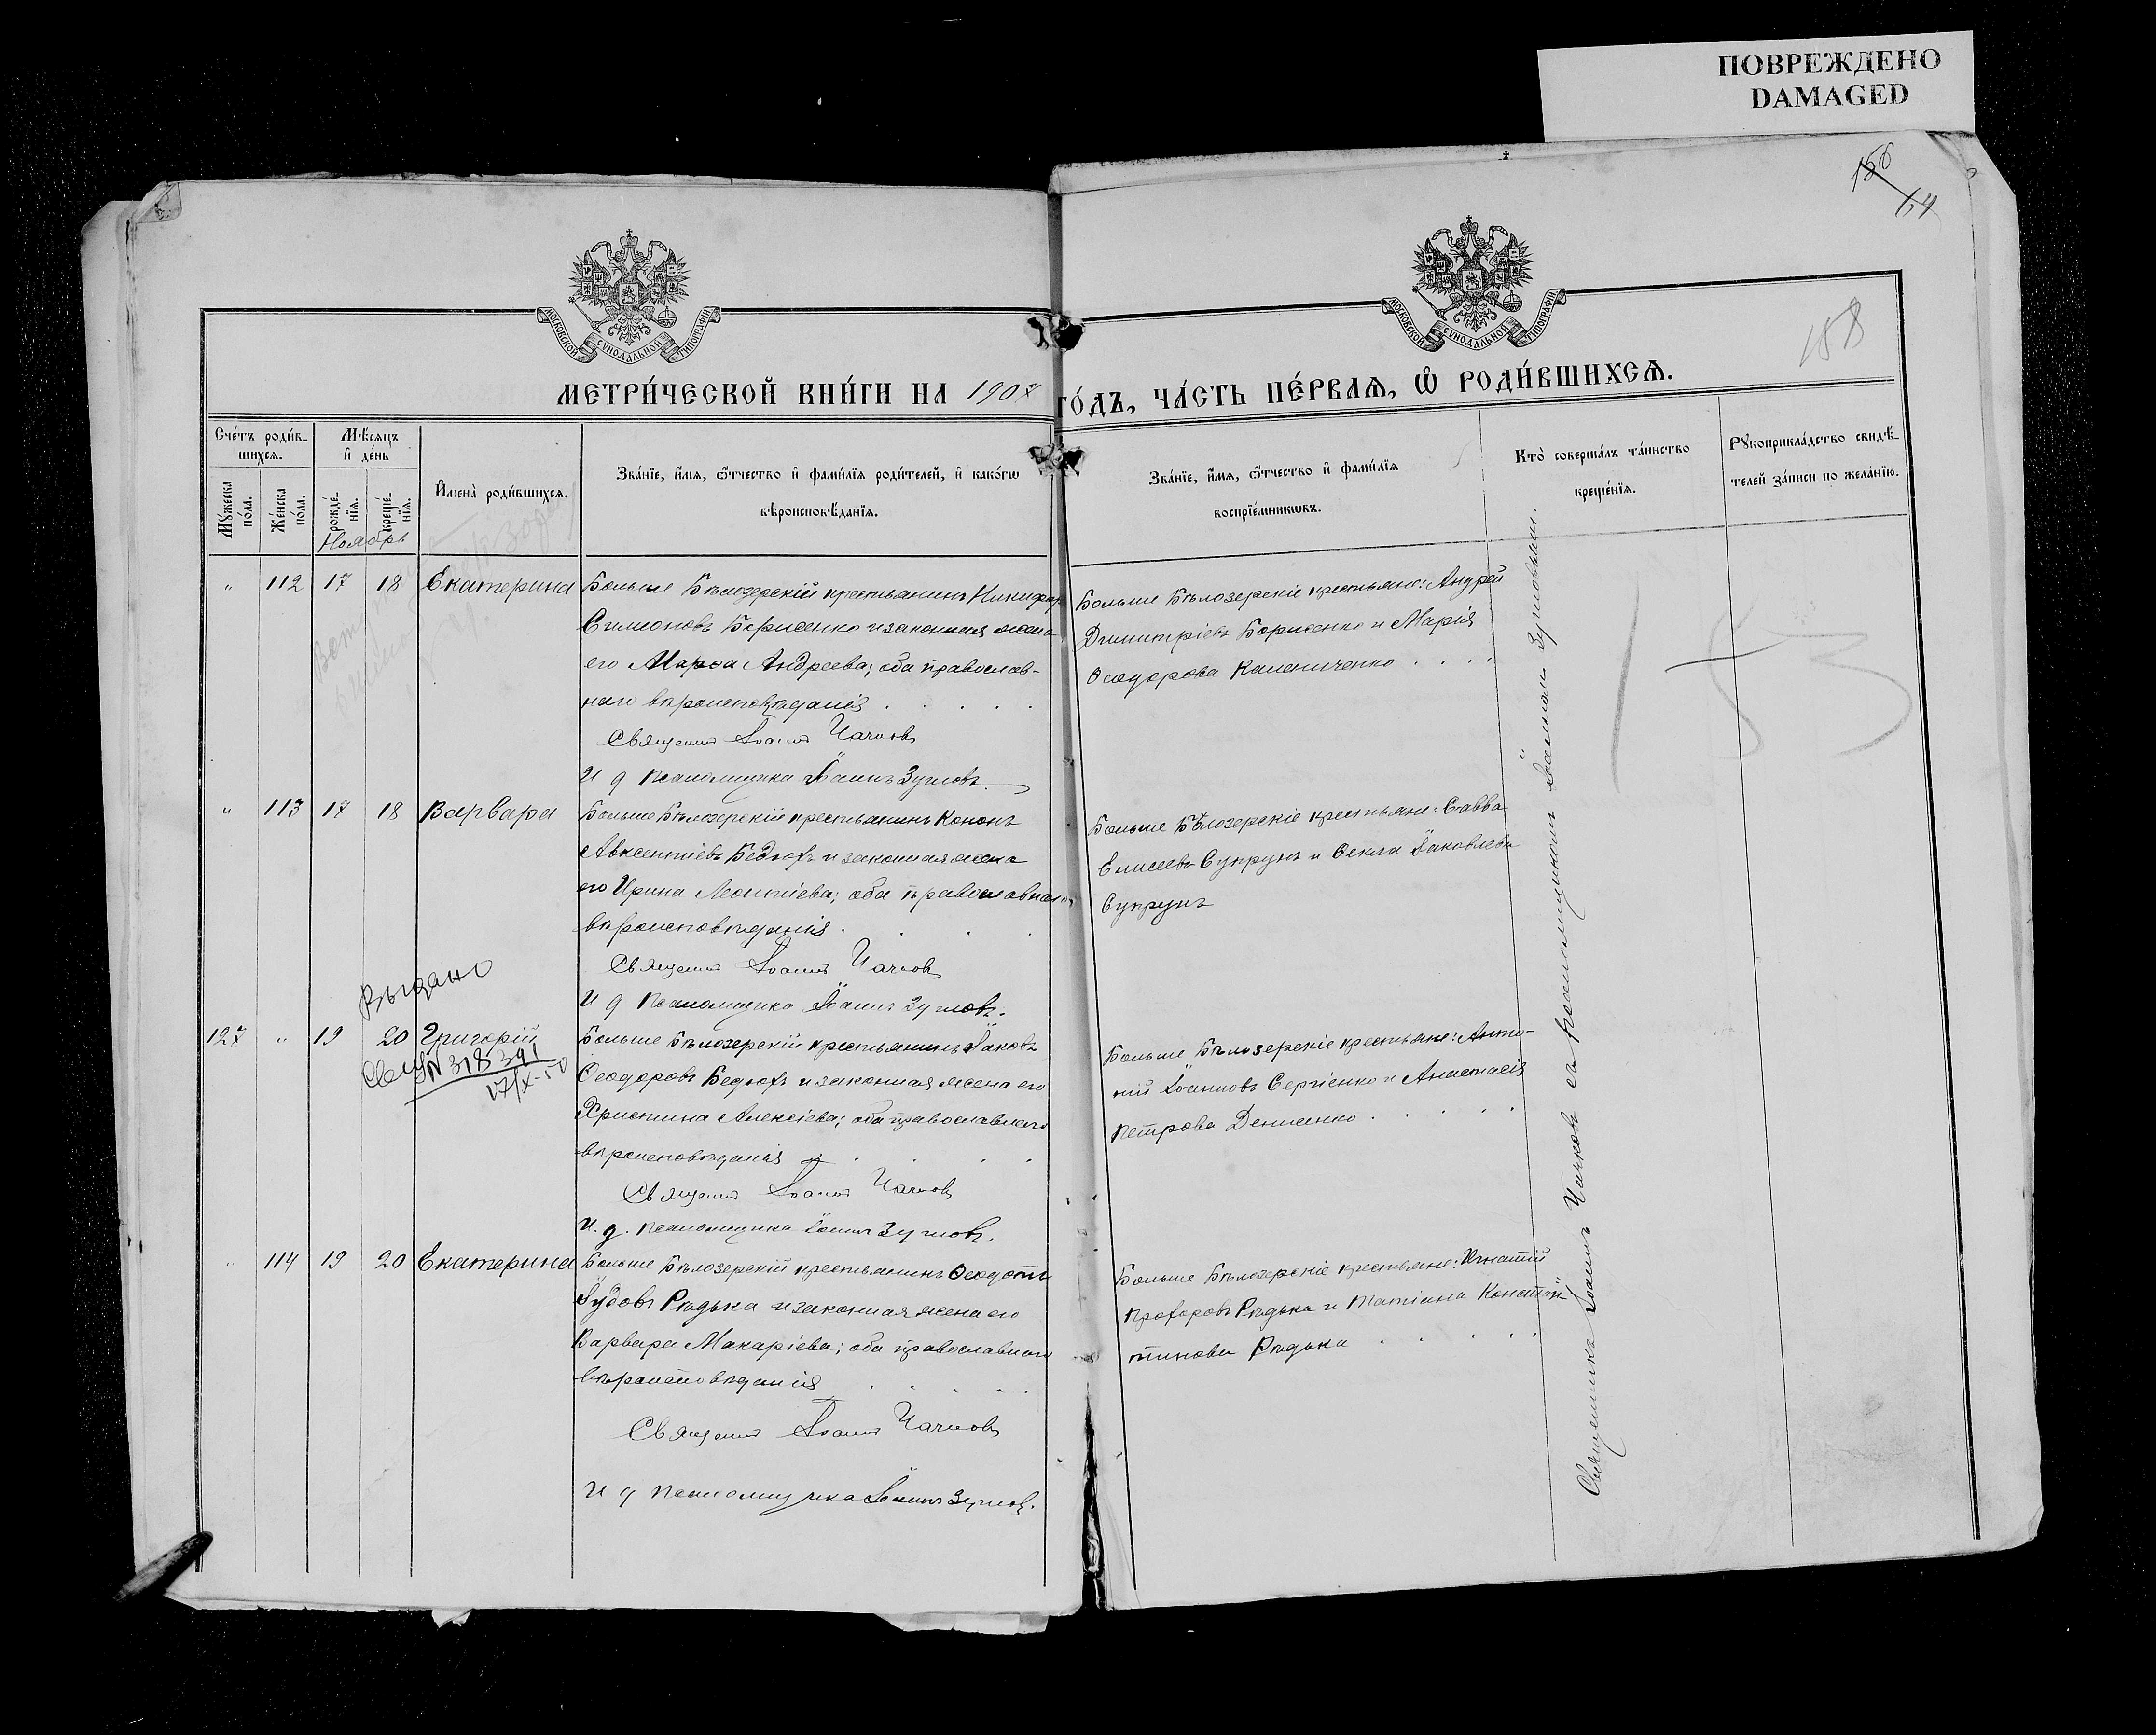 ПОВРЕЖДЕНО
DAMAGED
156
158
МОСКОВСКОЙ СУНОДАЛЬНОЙ ТИПОГРАФІИ
МОСКОВСКОЙ СУНОДАЛЬНОЙ ТИПОГРАФІИ
МЕТРИ́ЧЕСКОЙ КНИ́ГИ НА 1907
ГО́ДЪ, ЧА́СТЬ ПЕ́РВАѦ, Ѡ РОДИ́ВШИХСѦ.
Сче́тъ роди́в-
шихсѧ.
Мѣ́сѧцъ
и҆ де́нь
Мꙋ́жеска
по́ла.
Же́нска
по́ла.
рожде́-
нїѧ.
креще́-
нїѧ.
И҆мена̀ роди́вшихсѧ.
Зва́нїе, и҆́мѧ, ѻ҆́тчество и҆ фамѝлїѧ роди́телей, и҆ како́гѡ
вѣроисповѣ́данїѧ.
Зва́нїе, и҆́мѧ, ѻ҆́тчество и҆ фамѝлїѧ
воспрїе́мникѡвъ.
Кто̀ соверша́лъ та́инство
креще́нїѧ.
Рꙋкоприкла́дство свидѣ́-
телей за́писи по жела́нїю.
Ноябрь
" 112 17 18 Екатерина
Больше Бѣлозерскій крестьянинъ Никифоръ
Симеоновъ Борисенко и законная жена
его Марѳа Андреева; оба православ-
наго вѣроисповѣданія . . . .
Священникъ Іоаннъ Чачковъ
И д псаломщика Іоаннъ Зуиловъ.
Больше Бѣлозерскіе крестьяне: Андрей
Димитріевъ Борисенко и Марія
Ѳеодорова Калениченко . . . .
" 113 17 18 Варвара
Больше Бѣлозерскій крестьянинъ Кононъ
Авксентіевъ Бедюхъ и законная жена
его Ирина Леонтіева; оба православнаго
вѣроисповѣданія . . .
Священникъ Іоаннъ Чачковъ
И д псаломщика Іоаннъ Зуиловъ.
Больше Бѣлозерскіе крестьяне: Савва
Елисеевъ Супрунъ и Ѳекла Іаковлева
Супрунъ
Выдано
127 " 19 20 Григорій
N 318391
17/X-50
Больше Бѣлозерскій крестьянинъ Іаковъ
Ѳеодоровъ Бедюхъ и законная жена его
Христина Алексіева; оба православнаго
вѣроисповѣданія . . . .
Священникъ Іоаннъ Чачковъ
И. д. псаломщика Іоаннъ Зуиловъ.
Больше Бѣлозерскіе крестьяне: Анто-
ній Іоанновъ Сергіенко и Анастасія
Петрова Денисенко . . . . .
" 114 19 20 Екатерина
Больше Бѣлозерскій крестьянинъ Ѳеодотъ
Іудовъ Рѣдька и законная жена его
Варвара Макаріева; оба православнаго
вѣроисповѣданія . . . .
Священникъ Іоаннъ Чачковъ
И д псаломщика Іоаннъ Зуиловъ.
Больше Бѣлозерскіе крестьяне: Игнатій
Прохоровъ Рѣдька и Татіана Констан-
тинова Рѣдька . . . . .
Священникъ Іоаннъ Чачковъ съ псаломщикомъ Іоанномъ Зуиловымъ.